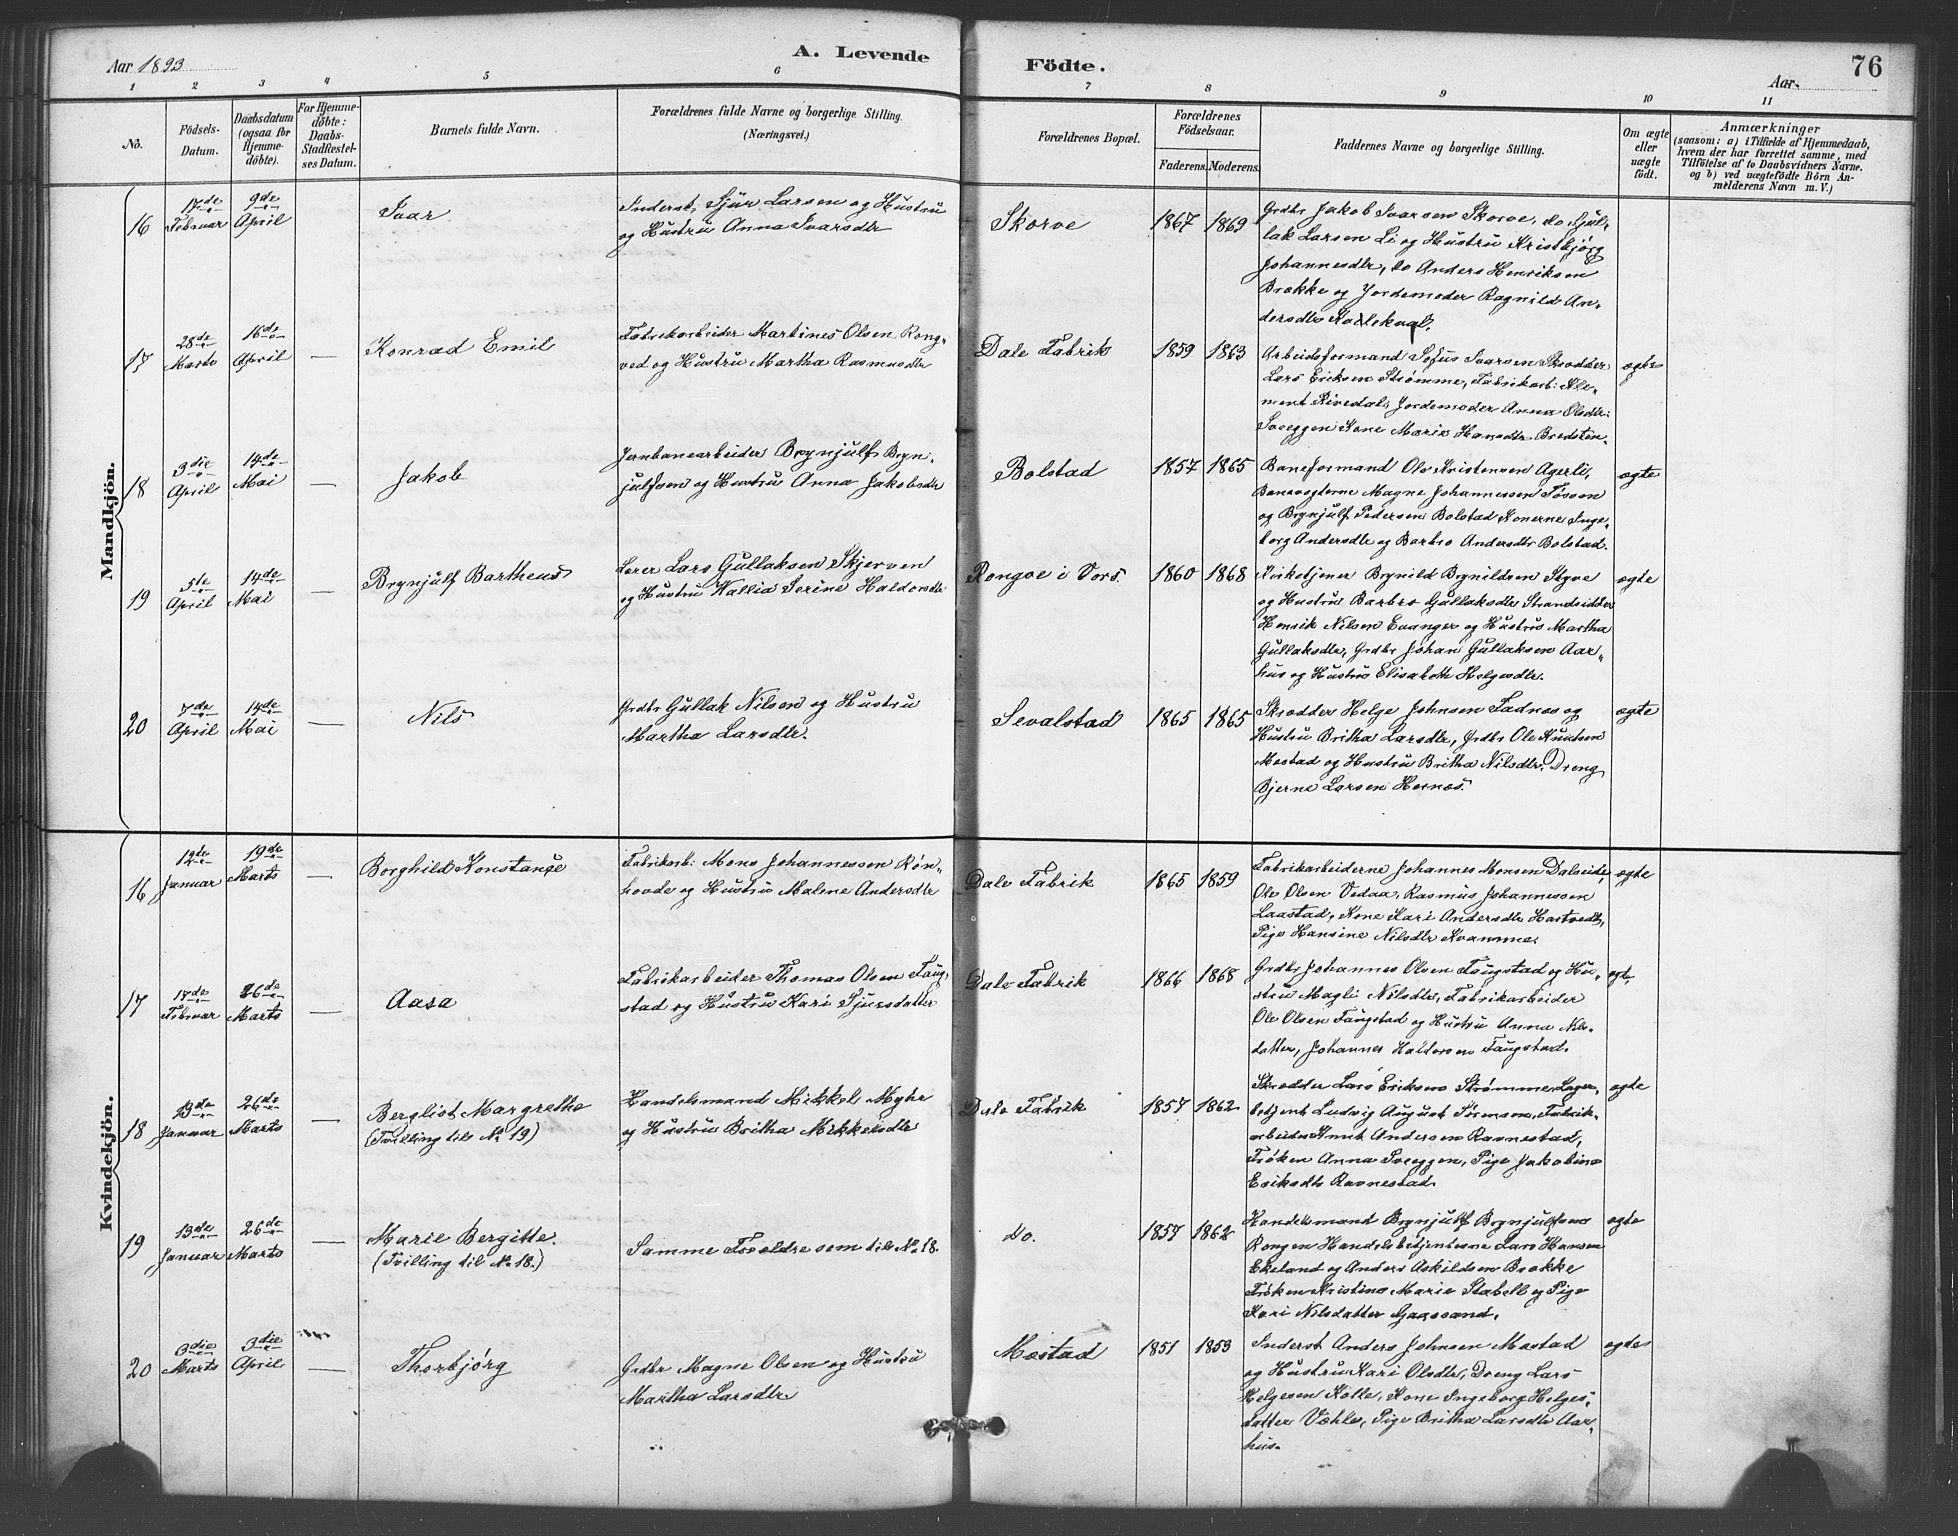 Aar 1893
A. Levende
Födte.
Aar
76
1 2 3 4 5 6 7 8 9 10 11
No.
Födsels-
Datum.
Daabsdatum
(ogsaa for
Hjemme-
döbte).
For Hjemme-
döbte:
Daabs-
Stadfæstel-
ses Datum.
Barnets fulde Navn.
Forældrenes fulde Navne og borgerlige Stilling.
(Næringsvei.)
Forældrenes Bopæl.
Forældrenes
Födselsaar.
Faderens. Moderens.
Faddernes Navne og borgerlige Stilling.
Om ægte
eller
uægte
født.
Anmærkninger
(saasom: a) i Tilfælde af Hjemmedaab,
hvem der har forrettet samme, med
Tilföielse af to Daabsvidners Navne.
og b) ved uægtefödte Börn An-
melderens Navn m. V.)
Mandkjön.
16
17de
Februar
9de
April
Ivar
Inderst, Sjur Larsen og Hustru
og Hustru Anna Ivarsdtr
Skorve
1867 1869
Grdbr Jakob Ivarsen Skorve, do Gjul-
lak Larsen Li og Hustru Kristbjørg
Johannesdtr, do Anders Henriksen
Brække og Jordemoder Ragnild An-
dersdtr
17
28de
Marts
16de
April
—
Konrad Emil
Fabrikarbeider Martines Olsen Rong-
ved og Hustru Martha Rasmusdtr
Dale Fabrik
1859 1863
Arbeidsformand Sofus Ivarsen Skrædder
Lars Eriksen Strømme, Fabrikarb: Kle-
ment Rivedal, Jordemoder Anna Olsdtr:
Sveggen Kone Marie Hansdtr
ægte
18
3die
April
14de
Mai
—
Jakob
Jernbanearbeider Brynjulf Bryn-
julfsen og Hustru Anna Jakobsdtr
Bolstad
1857 1865
Baneformand Ole Kristensen Agerli,
Banevogterne Magne Johannessen Føssen
og Brynjulf Pedersen Bolstad Konerne Inge-
borg Andersdtr og Barbro Andersdtr Bolstad.
ægte
19
5te
April
14de
Mai
—
Brynjulf Bartheus
Lærer Lars Gullaksen Skjerven
og Hustru Wallia Serine Haldorsdtr
Rongve i Vors.
1860 1868
Kirketjener Brynild Brynildsen Styve
og Hustru Barbro Gullaksdtr Strandsidder
Henrik Nilsen Evanger og Hustru Martha
Gullaksdtr, Grdbr Johan Gullaksen Aar-
hus og Hustru Elisabeth Helgesdtr.
ægte
20
7de
April
14de
Mai
—
Nils
Grdbr Gullak Nilsen og Hustru
Martha Larsdtr.
Sevalstad
1865 1865
Skrædder Helge Johnsen Fadnes og
Hustru Britha Larsdtr, Grdbr Ole Knutsen
Mestad og Hustru Britha Nilsdtr, Dreng
Bjerne Larsen Hernæs.
ægte
Kvindekjön.
16
12de
Januar
19de
Marts
—
Borghild Konstance
Fabrikarb: Mons Johannessen Røn-
hovde og Hustru Malene Andersdtr
Dale Fabrik
1865 1859
Fabrikarbeiderne Johannes Monsen Dalseide,
Ole Olsen Vedaa, Rasmus Johannessen
Laastad, Kone Kari Andersdtr Hartvedt,
Pige Hansine Nilsdtr Kvamme.
ægte
17
17de
Februar
26de
Marts
—
Aasa
Fabrikarbeider Thomas Olsen Faug-
stad og Hustru Kari Sjursdatter
Dale Fabrik
1866 1868
Grdbr Johannes Olsen Faugstad og Hu-
stru Magli Nilsdtr, Fabrikarbeider
Ole Olsen Faugstad og Hustru Anna Nils-
datter, Johannes Haldorsen Faugstad.
ægte
18
13de
Januar
26de
Marts
—
Bergliot Margrethe
(Tvilling til No 19)
Handelsmand Mikkel Myhr
og Hustru Britha Mikkelsdtr
Dale Fabrik
1857 1862
Skrædder Lars Eriksen Strømme, Lager-
betjent Ludvig August Sørensen, Fabrik-
arbeider Knut Andersen Ravnestad,
Frøken Anna Sveggen, Pige Jakobine
Eriksdtr Ravnestad.
ægte
19
13de
Januar
26de
Marts
—
Marie Bergitte.
(Tvilling til No 18.)
Samme Forældre som til No 18.
Do.
1857 1862
Handelsmand Brynjulf Brynjulfsen
Rongen Handelsbetjenterne Lars Hansen
Ekeland og Anders Askildsen Brække
Frøken Kristine Marie Stabell og Pige
Kari Nilsdatter Gjassand.
ægte
20
3die
Marts
3die
April
—
Thorbjørg
Grdbr Magne Olsen og Hustru
Martha Larsdtr
Mestad
1851 1853
Inderst Anders Johnsen Mestad
og Hustru Kari Olsdtr, Dreng Lars
Helgesen Kolle, Kone Ingeborg Helges-
datter Væhle, Pige Britha Larsdtr Aar-
hus.
ægte